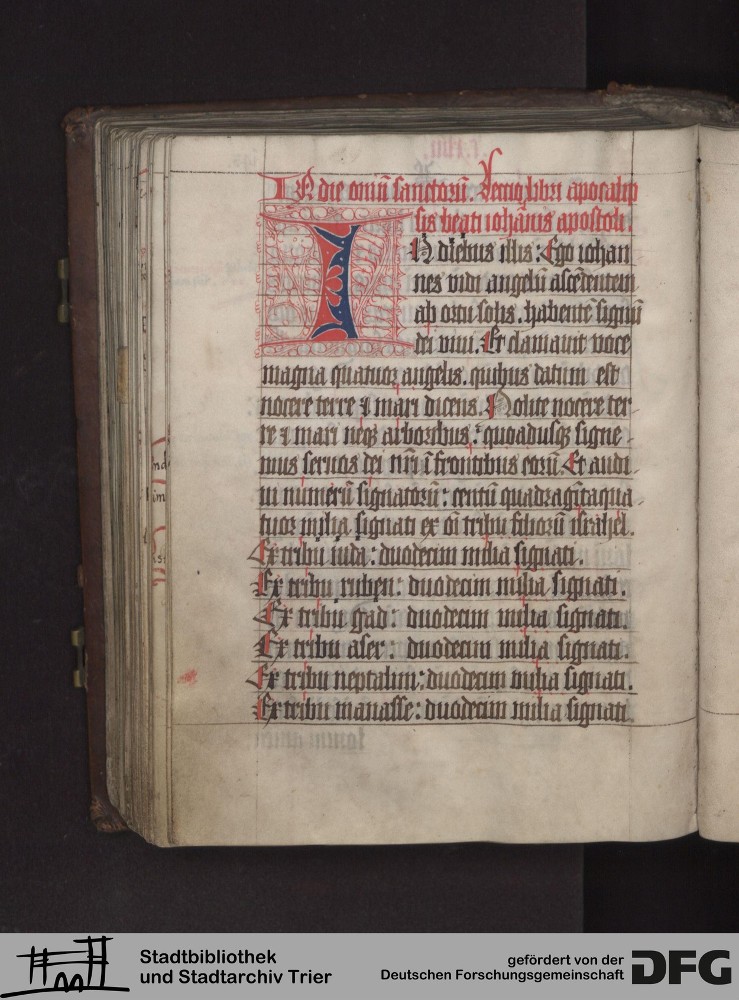 IN die om̄iū sanctorū. Lectio libri apocalip
sis beati ioh̄annis apostoli.
IN diebus illis: Ego iohan
nes vidi angelū ascēdentem
ab ortu solis. habentē signū
dei viui. Et clamauit voce
magna quatuor angelis. quibus datum est
nocere terre ⁊ mari dicens. Nolite nocere ter-
re ⁊ mari neqꝫ arboribus: quoadusqꝫ signe-
mus seruos dei nr̄i ī frontibus eorū. Et audi-
ui numerū signatorū: centū quadragītaqua-
tuor milia signati ex oī tribu filiorū israhel.
Ex tribu iuda: duodecim milia signati.
Ex tribu ruben: duodecim milia signati.
Ex tribu gad: duodecim milia signati.
Ex tribu aser: duodecim milia signati.
Ex tribu neptalim: duodecim milia signati.
Ex tribu manasse: duodecim milia signati.
Stadtbibliothek
und Stadtarchiv Trier
gefördert von der
Deutschen Forschungsgemeinschaft
DFG